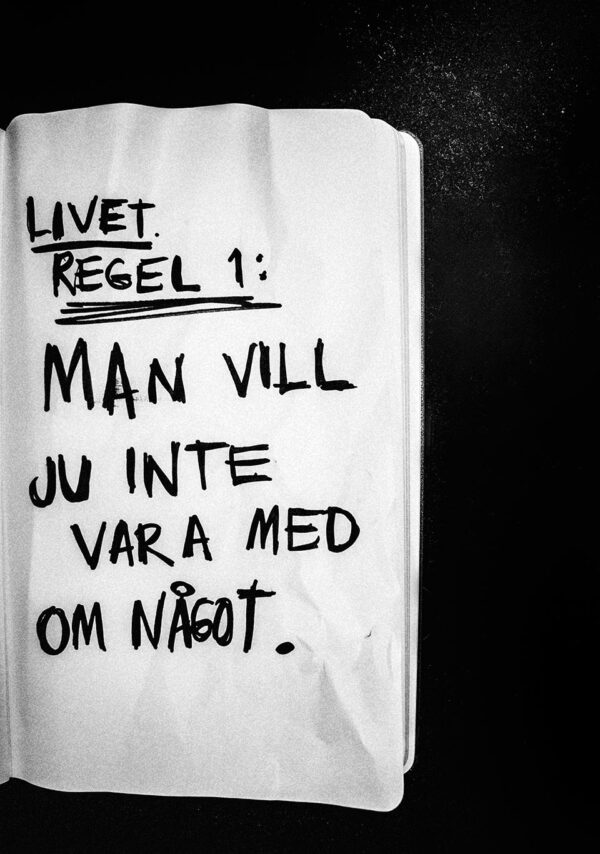 LIVET.
REGEL 1:
MAN VILL
JU INTE
VARA MED
OM NÅGOT.